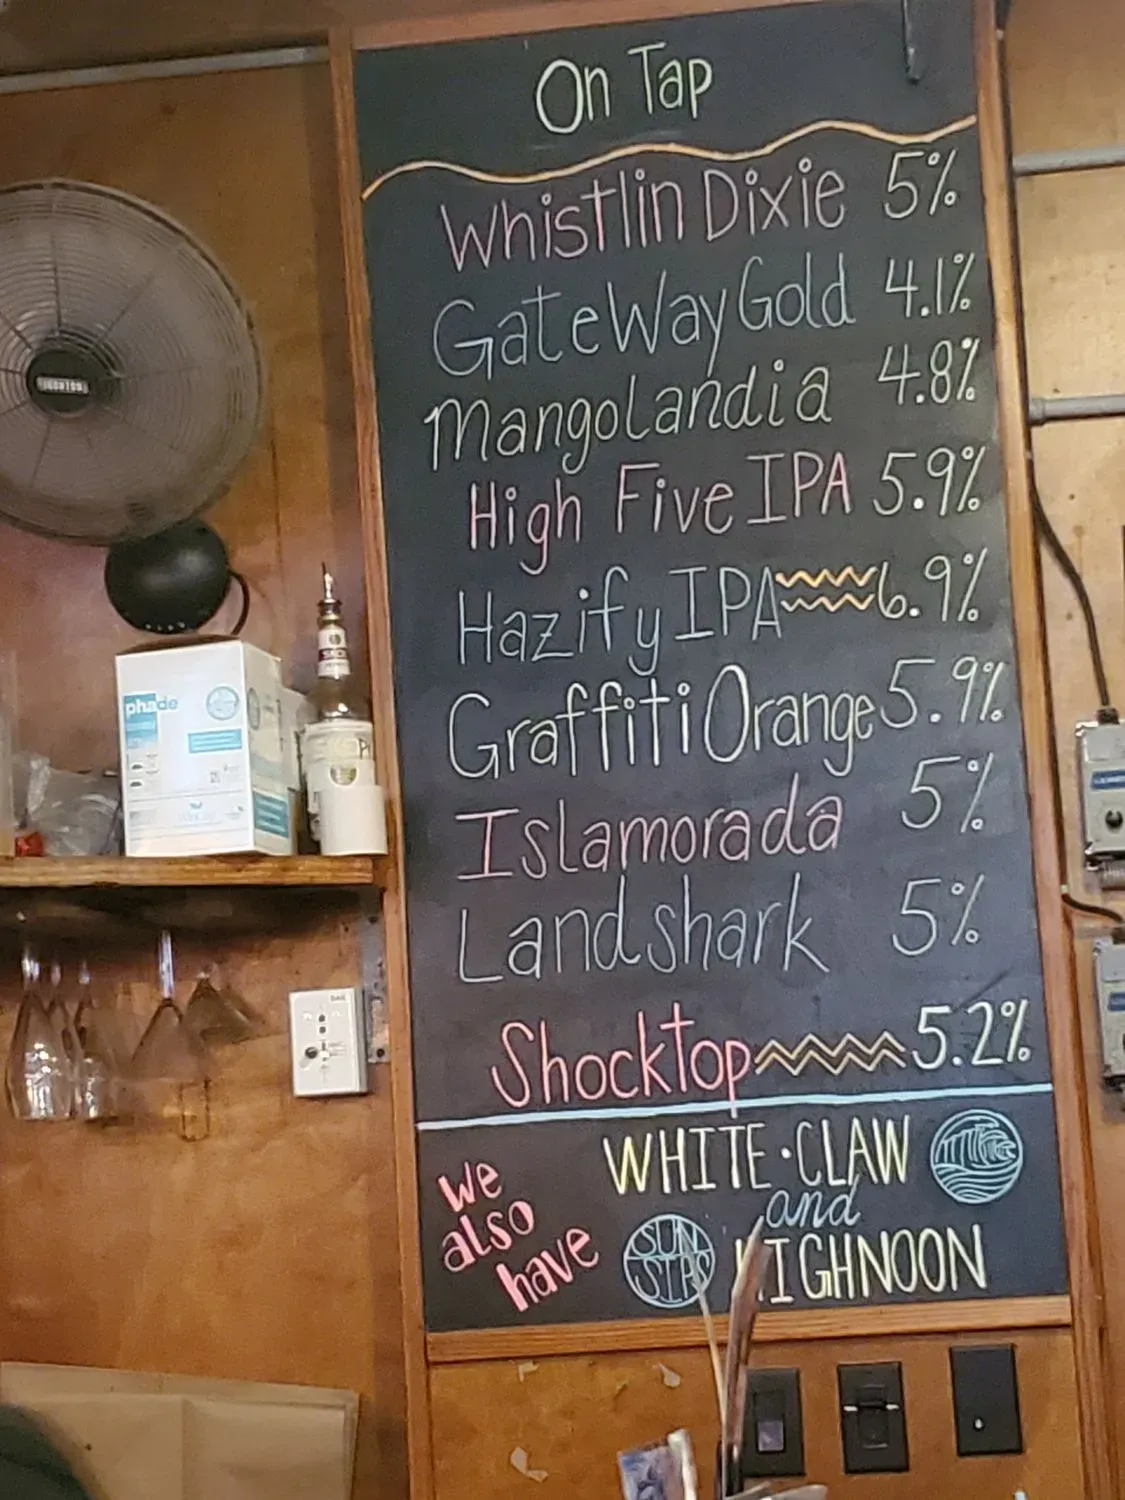 On Tap
Whistlin Dixie 5%
GateWay Gold 4.1%
Mangolandia 4.8%
High Five IPA 5.9%
Hazify IPA 6.9%
Graffiti Orange 5.9%
Islamorada 5%
Landshark 5%
Shocktop 5.2%
We also have
WHITE · CLAW
and
SUN SIPS
HIGHNOON
phade